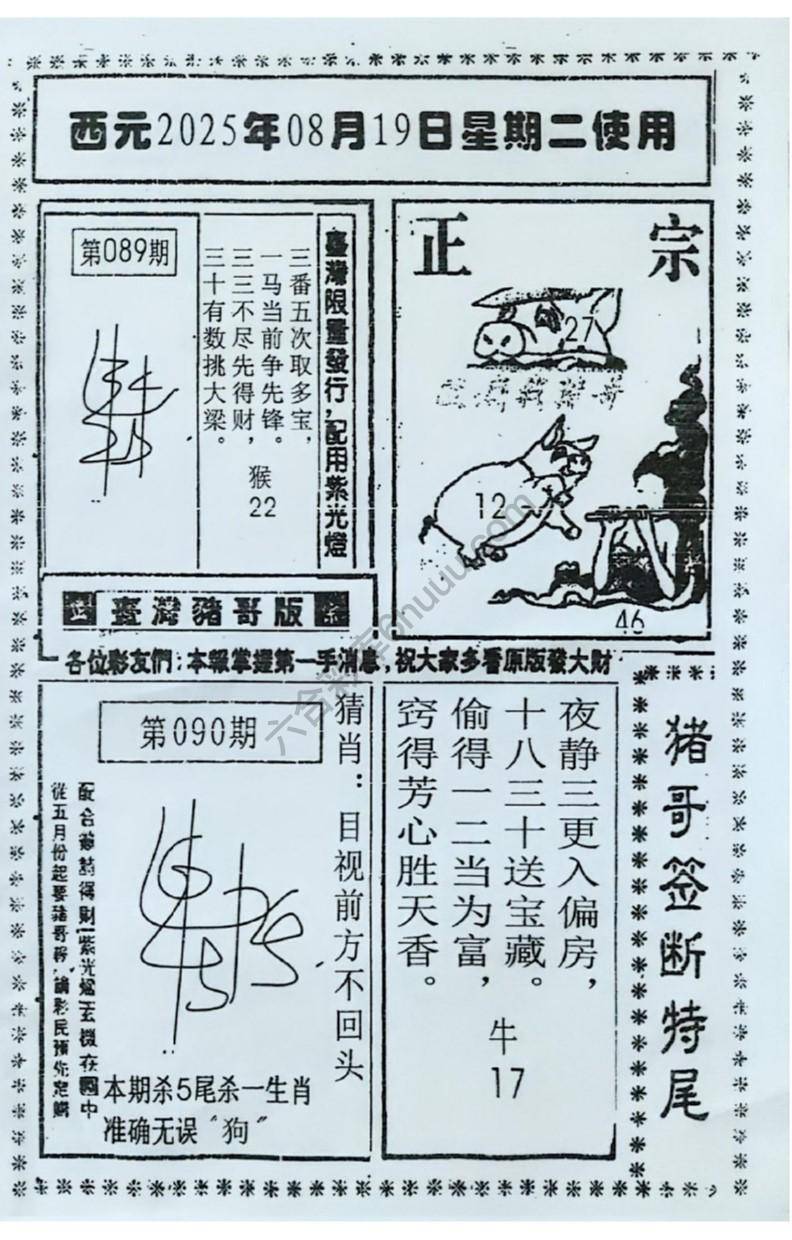 西元2025年08月19日星期二使用
第089期
臺灣限量發行,配用紫光燈
三番五次取多宝,
一马当前争先锋。
三三不尽先得财,
三十有数挑大梁。
猴
22
正宗
27
12
46
正 臺灣豬哥版 宗
各位彩友們:本報掌握第一手消息,祝大家多看原版發大財
第090期
猜肖:目视前方不回头
從五月份起要豬哥報
本期杀5尾杀一生肖
准确无误“狗”
夜静三更入偏房,
十八三十送宝藏。
偷得一二当为富,
窍得芳心胜天香。
牛
17
猪哥签断特尾
六合彩库6huuu.com